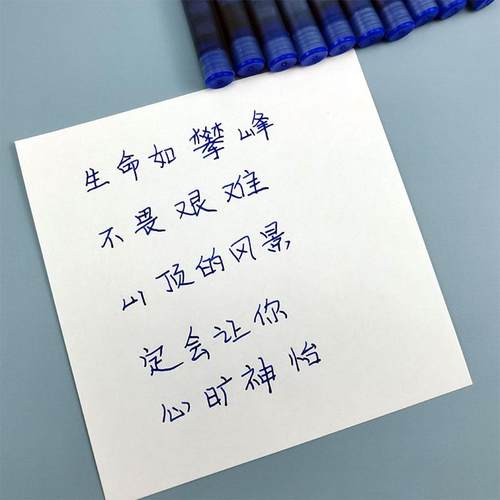 生命如攀峰
不畏艰难
山顶的风景
定会让你
心旷神怡